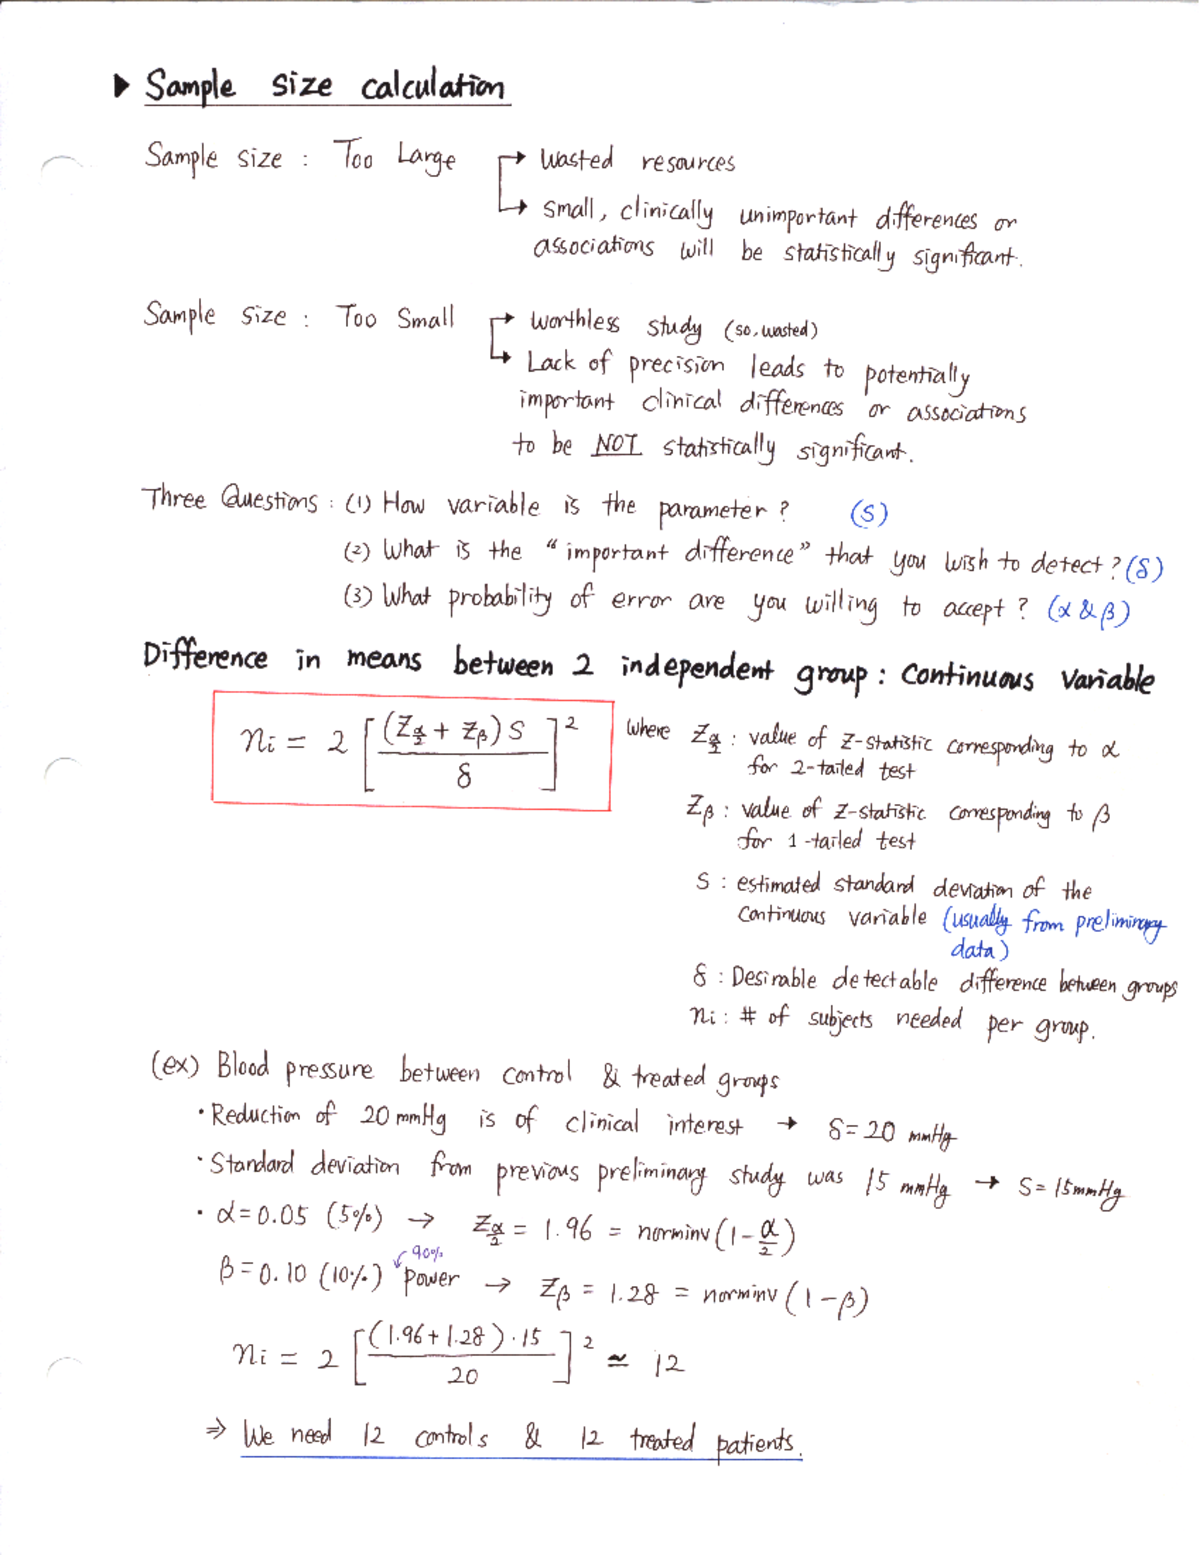 ▶ Sample size calculation
Sample size : Too Large → Wasted resources
→ small, clinically unimportant differences or
associations will be statistically significant.
Sample size : Too Small → Worthless study (so, wasted)
→ Lack of precision leads to potentially
important clinical differences or associations
to be NOT statistically significant.
Three Questions : (1) How variable is the parameter ? (S)
(2) What is the "important difference" that you wish to detect ? (δ)
(3) What probability of error are you willing to accept ? (α & β)
Difference in means between 2 independent group : Continuous Variable
ni = 2 [ (Zα/2 + Zβ) S / δ ]²
where Zα/2 : value of Z-statistic corresponding to α
for 2-tailed test
Zβ : value of Z-statistic corresponding to β
for 1-tailed test
S : estimated standard deviation of the
continuous variable (usually from preliminary
data)
δ : Desirable detectable difference between groups
ni : # of subjects needed per group.
(ex) Blood pressure between control & treated groups
• Reduction of 20 mmHg is of clinical interest → δ = 20 mmHg
• Standard deviation from previous preliminary study was 15 mmHg → S = 15mmHg
• α = 0.05 (5%) → Zα/2 = 1.96 = norminv(1 - α/2)
90%
β = 0.10 (10%) power → Zβ = 1.28 = norminv(1 - β)
ni = 2 [ (1.96 + 1.28) · 15 / 20 ]² ≃ 12
⇒ We need 12 controls & 12 treated patients.